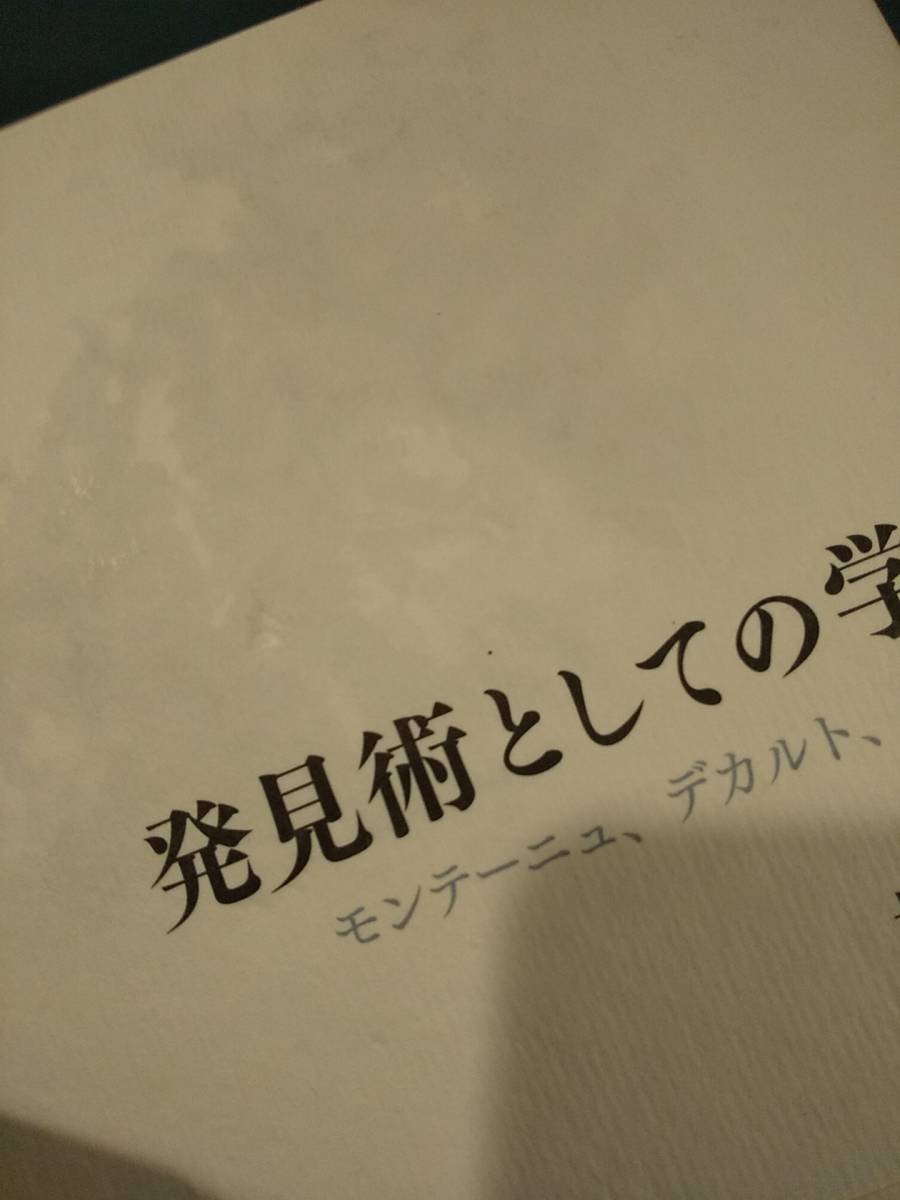 発見術としての学
モンテーニュ、デカルト、